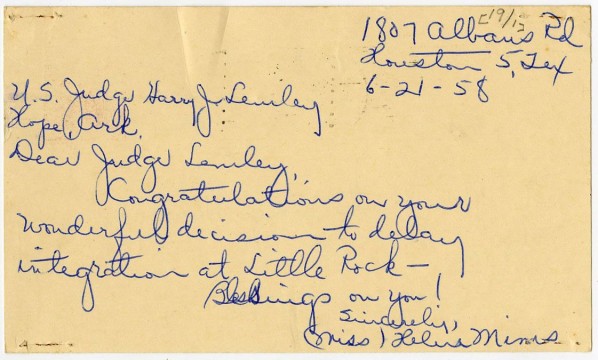 [19/12
1807 Albans Rd
Houston 5, Tex
6-21-58
U.S. Judge Harry J. Lemley
Hope, Ark.
Dear Judge Lemley,
Congratulations on your
wonderful decision to delay
integration at Little Rock—
Blessings on you!
Sincerely,
(Miss) Helena Mimms